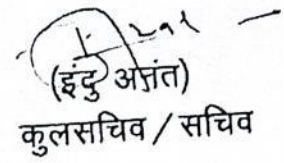 (इंदु अनंत)
कुलसचिव / सचिव